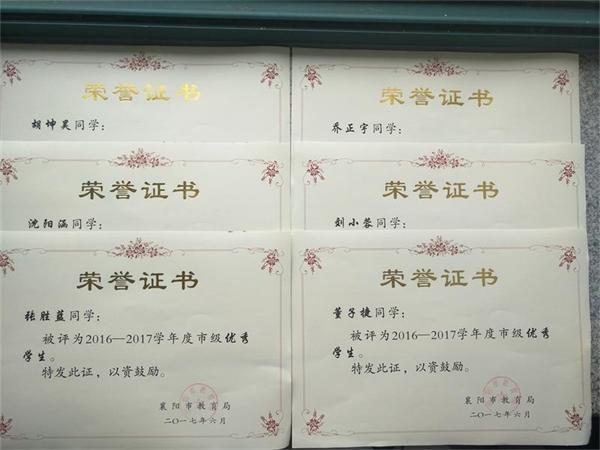 荣誉证书
胡坤昊同学:
荣誉证书
乔正宇同学:
荣誉证书
沈阳涵同学:
荣誉证书
刘小蓉同学:
荣誉证书
张胜蓝同学:
被评为2016—2017学年度市级优秀
学生。
特发此证，以资鼓励。
襄阳市教育局
二〇一七年六月
荣誉证书
董子捷同学:
被评为2016—2017学年度市级优秀
学生。
特发此证，以资鼓励。
襄阳市教育局
二〇一七年六月